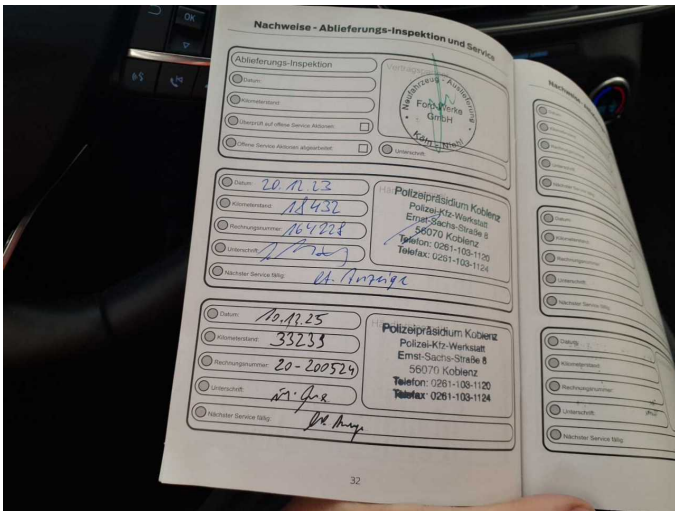 OK
Nachweise - Ablieferungs-Inspektion und Service
Ablieferungs-Inspektion
Datum:
Kilometerstand:
Überprüft auf offene Service Aktionen:
Offene Service Aktionen abgearbeitet:
Neufahrzeug - Auslieferung
Ford-Werke
GmbH
Köln - Niehl
Unterschrift:
Datum: 20.12.23
Kilometerstand: 18432
Rechnungsnummer: 164228
Unterschrift:
Nächster Service fällig: lt. Anzeige
Polizeipräsidium Koblenz
Polizei-Kfz-Werkstatt
Ernst-Sachs-Straße 8
56070 Koblenz
Telefon: 0261-103-1120
Telefax: 0261-103-1124
Datum: 10.12.25
Kilometerstand: 33239
Rechnungsnummer: 20-200524
Unterschrift:
Nächster Service fällig:
Polizeipräsidium Koblenz
Polizei-Kfz-Werkstatt
Ernst-Sachs-Straße 8
56070 Koblenz
Telefon: 0261-103-1120
Telefax: 0261-103-1124
32
Datum:
Kilometerstand:
Rechnungsnummer:
Unterschrift:
Nächster Service fällig:
Datum:
Kilometerstand:
Rechnungsnummer:
Unterschrift:
Nächster Service fällig:
Datum:
Kilometerstand:
Rechnungsnummer:
Unterschrift:
Nächster Service fällig: